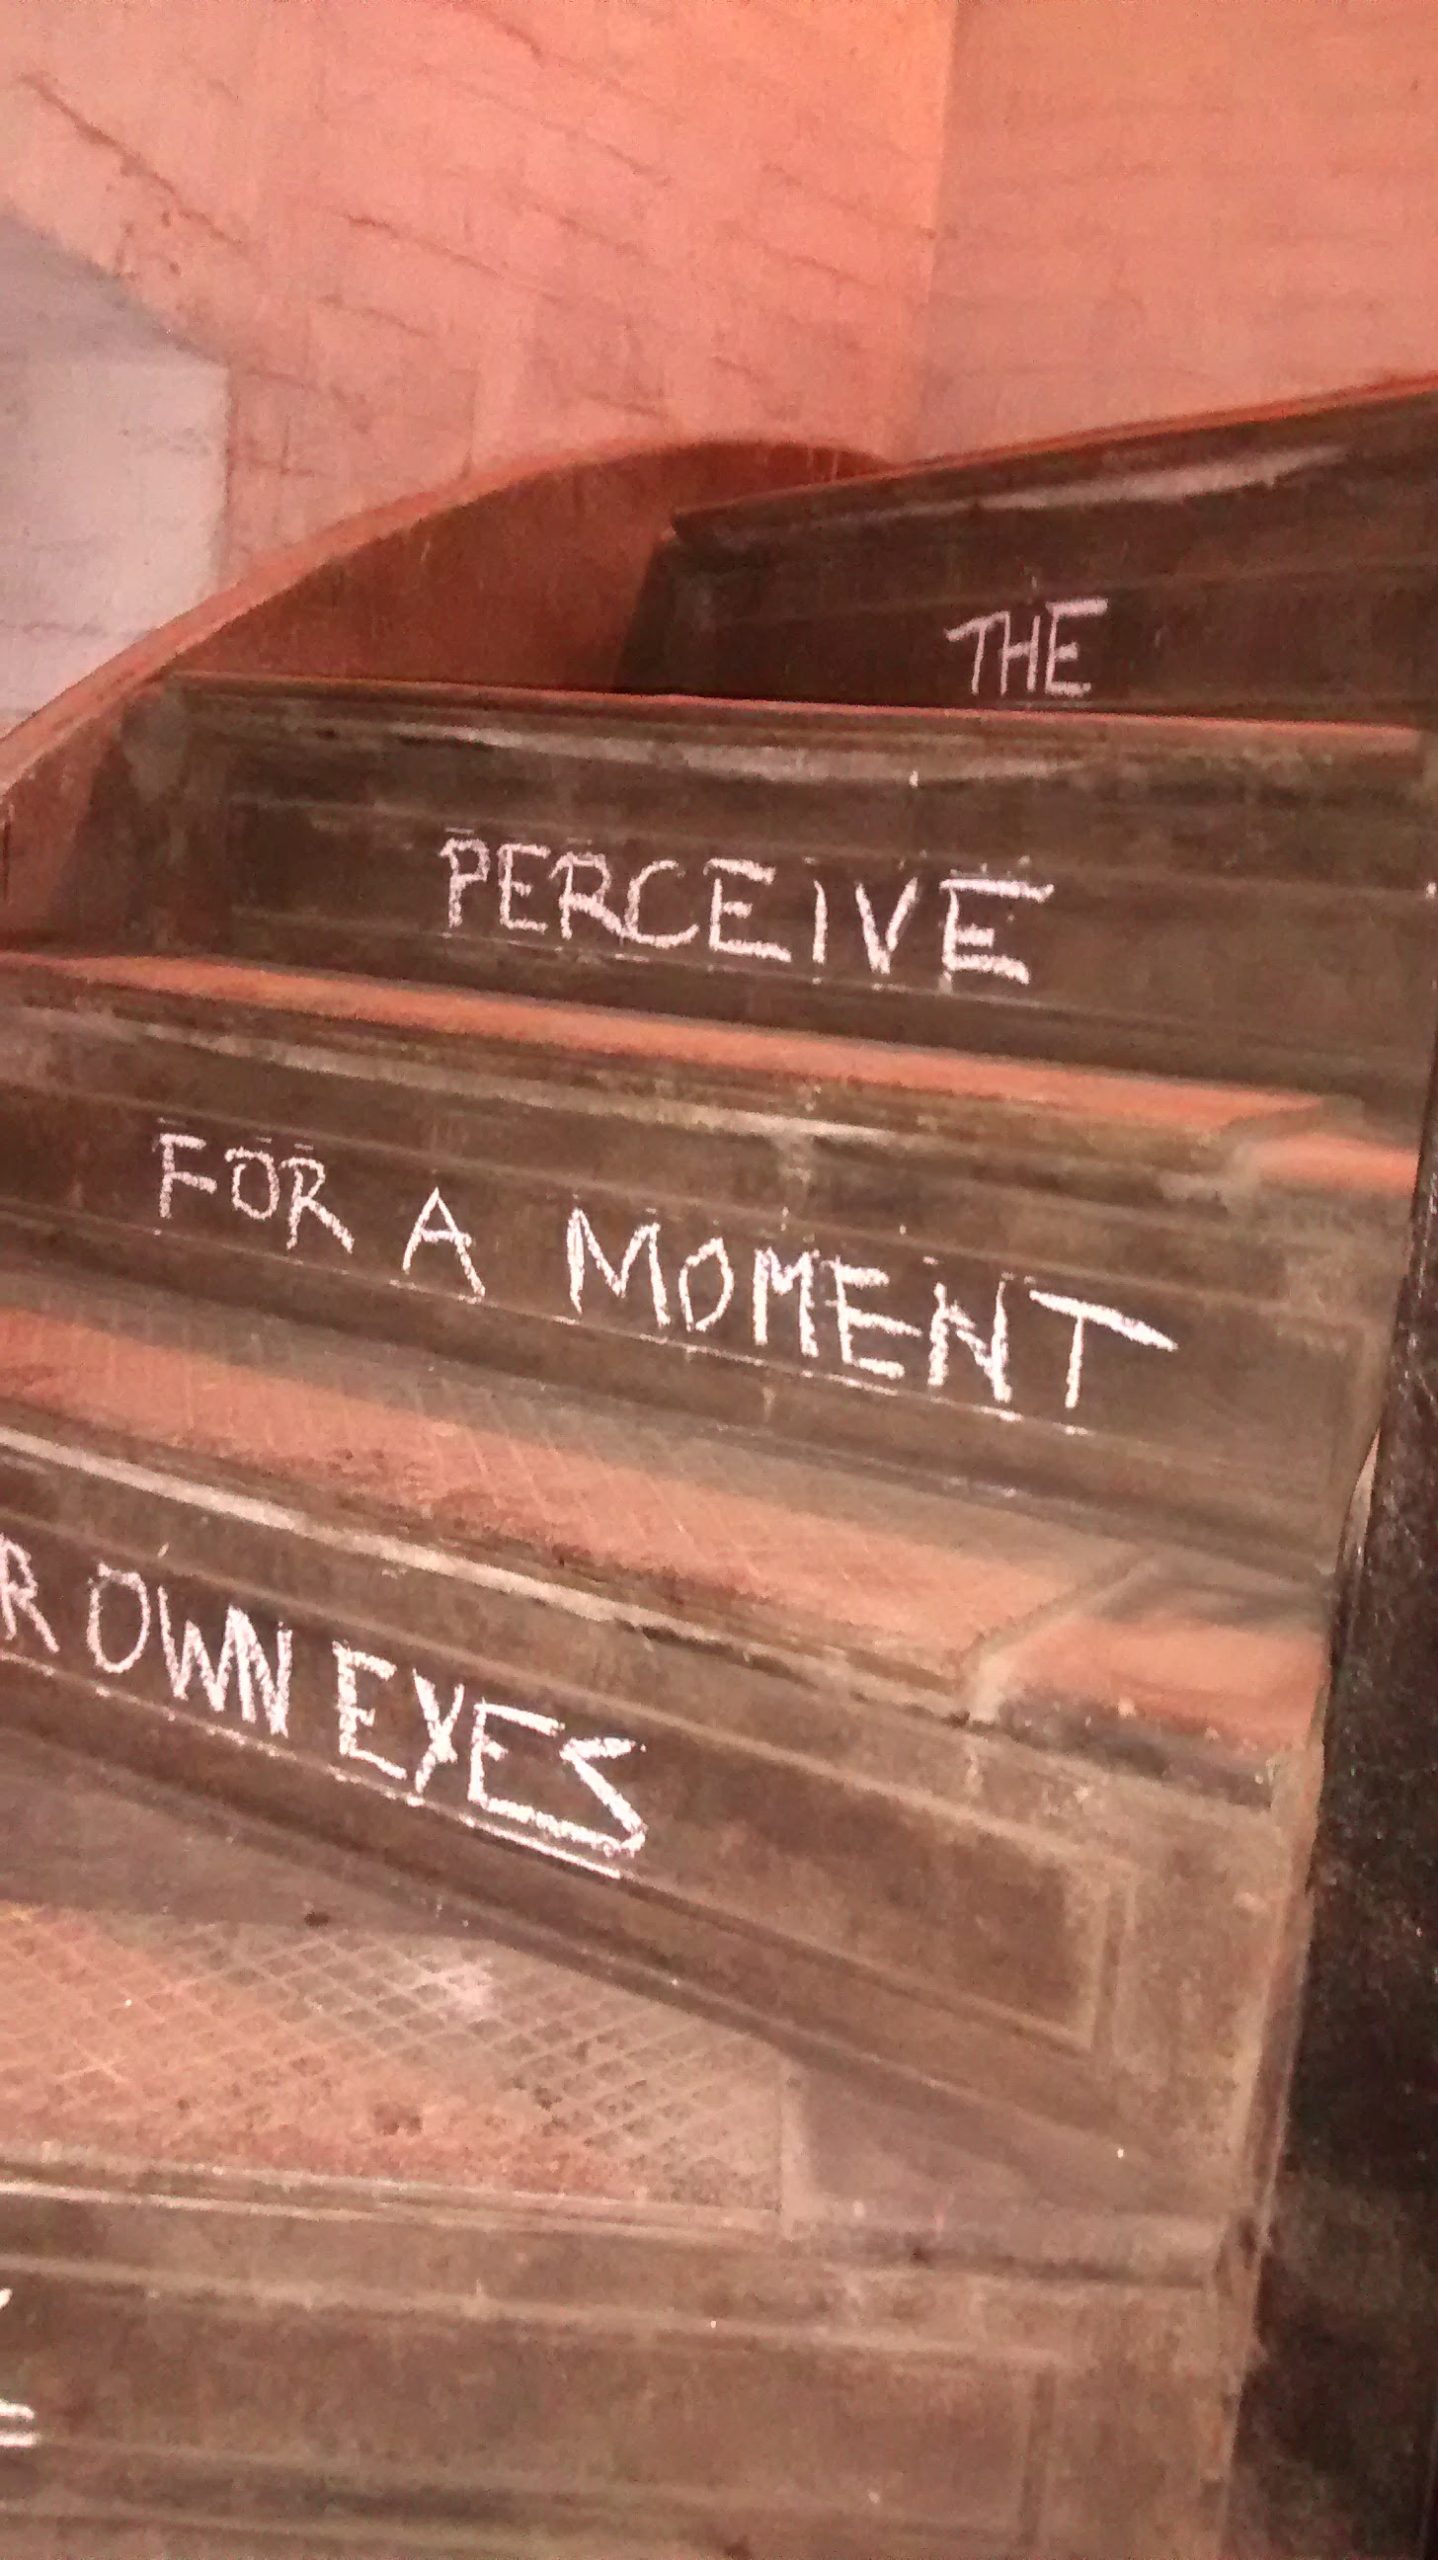 THE
PERCEIVE
FOR A MOMENT
R OWN EYES